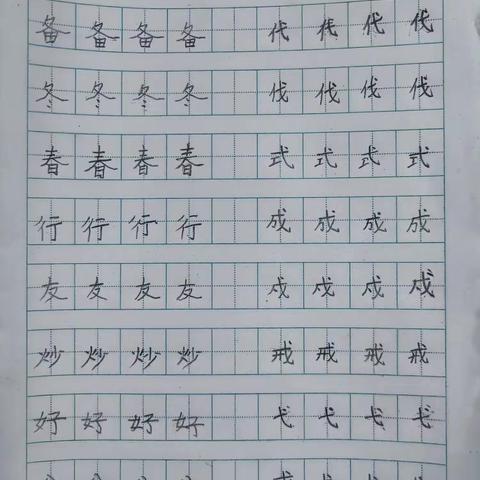 备备备备 代代代代
冬冬冬冬 伐伐伐伐
春春春春 式式式式
行行行行 成成成成
友友友友 戍戍戍戍
炒炒炒炒 戒戒戒戒
好好好好 弋弋弋弋